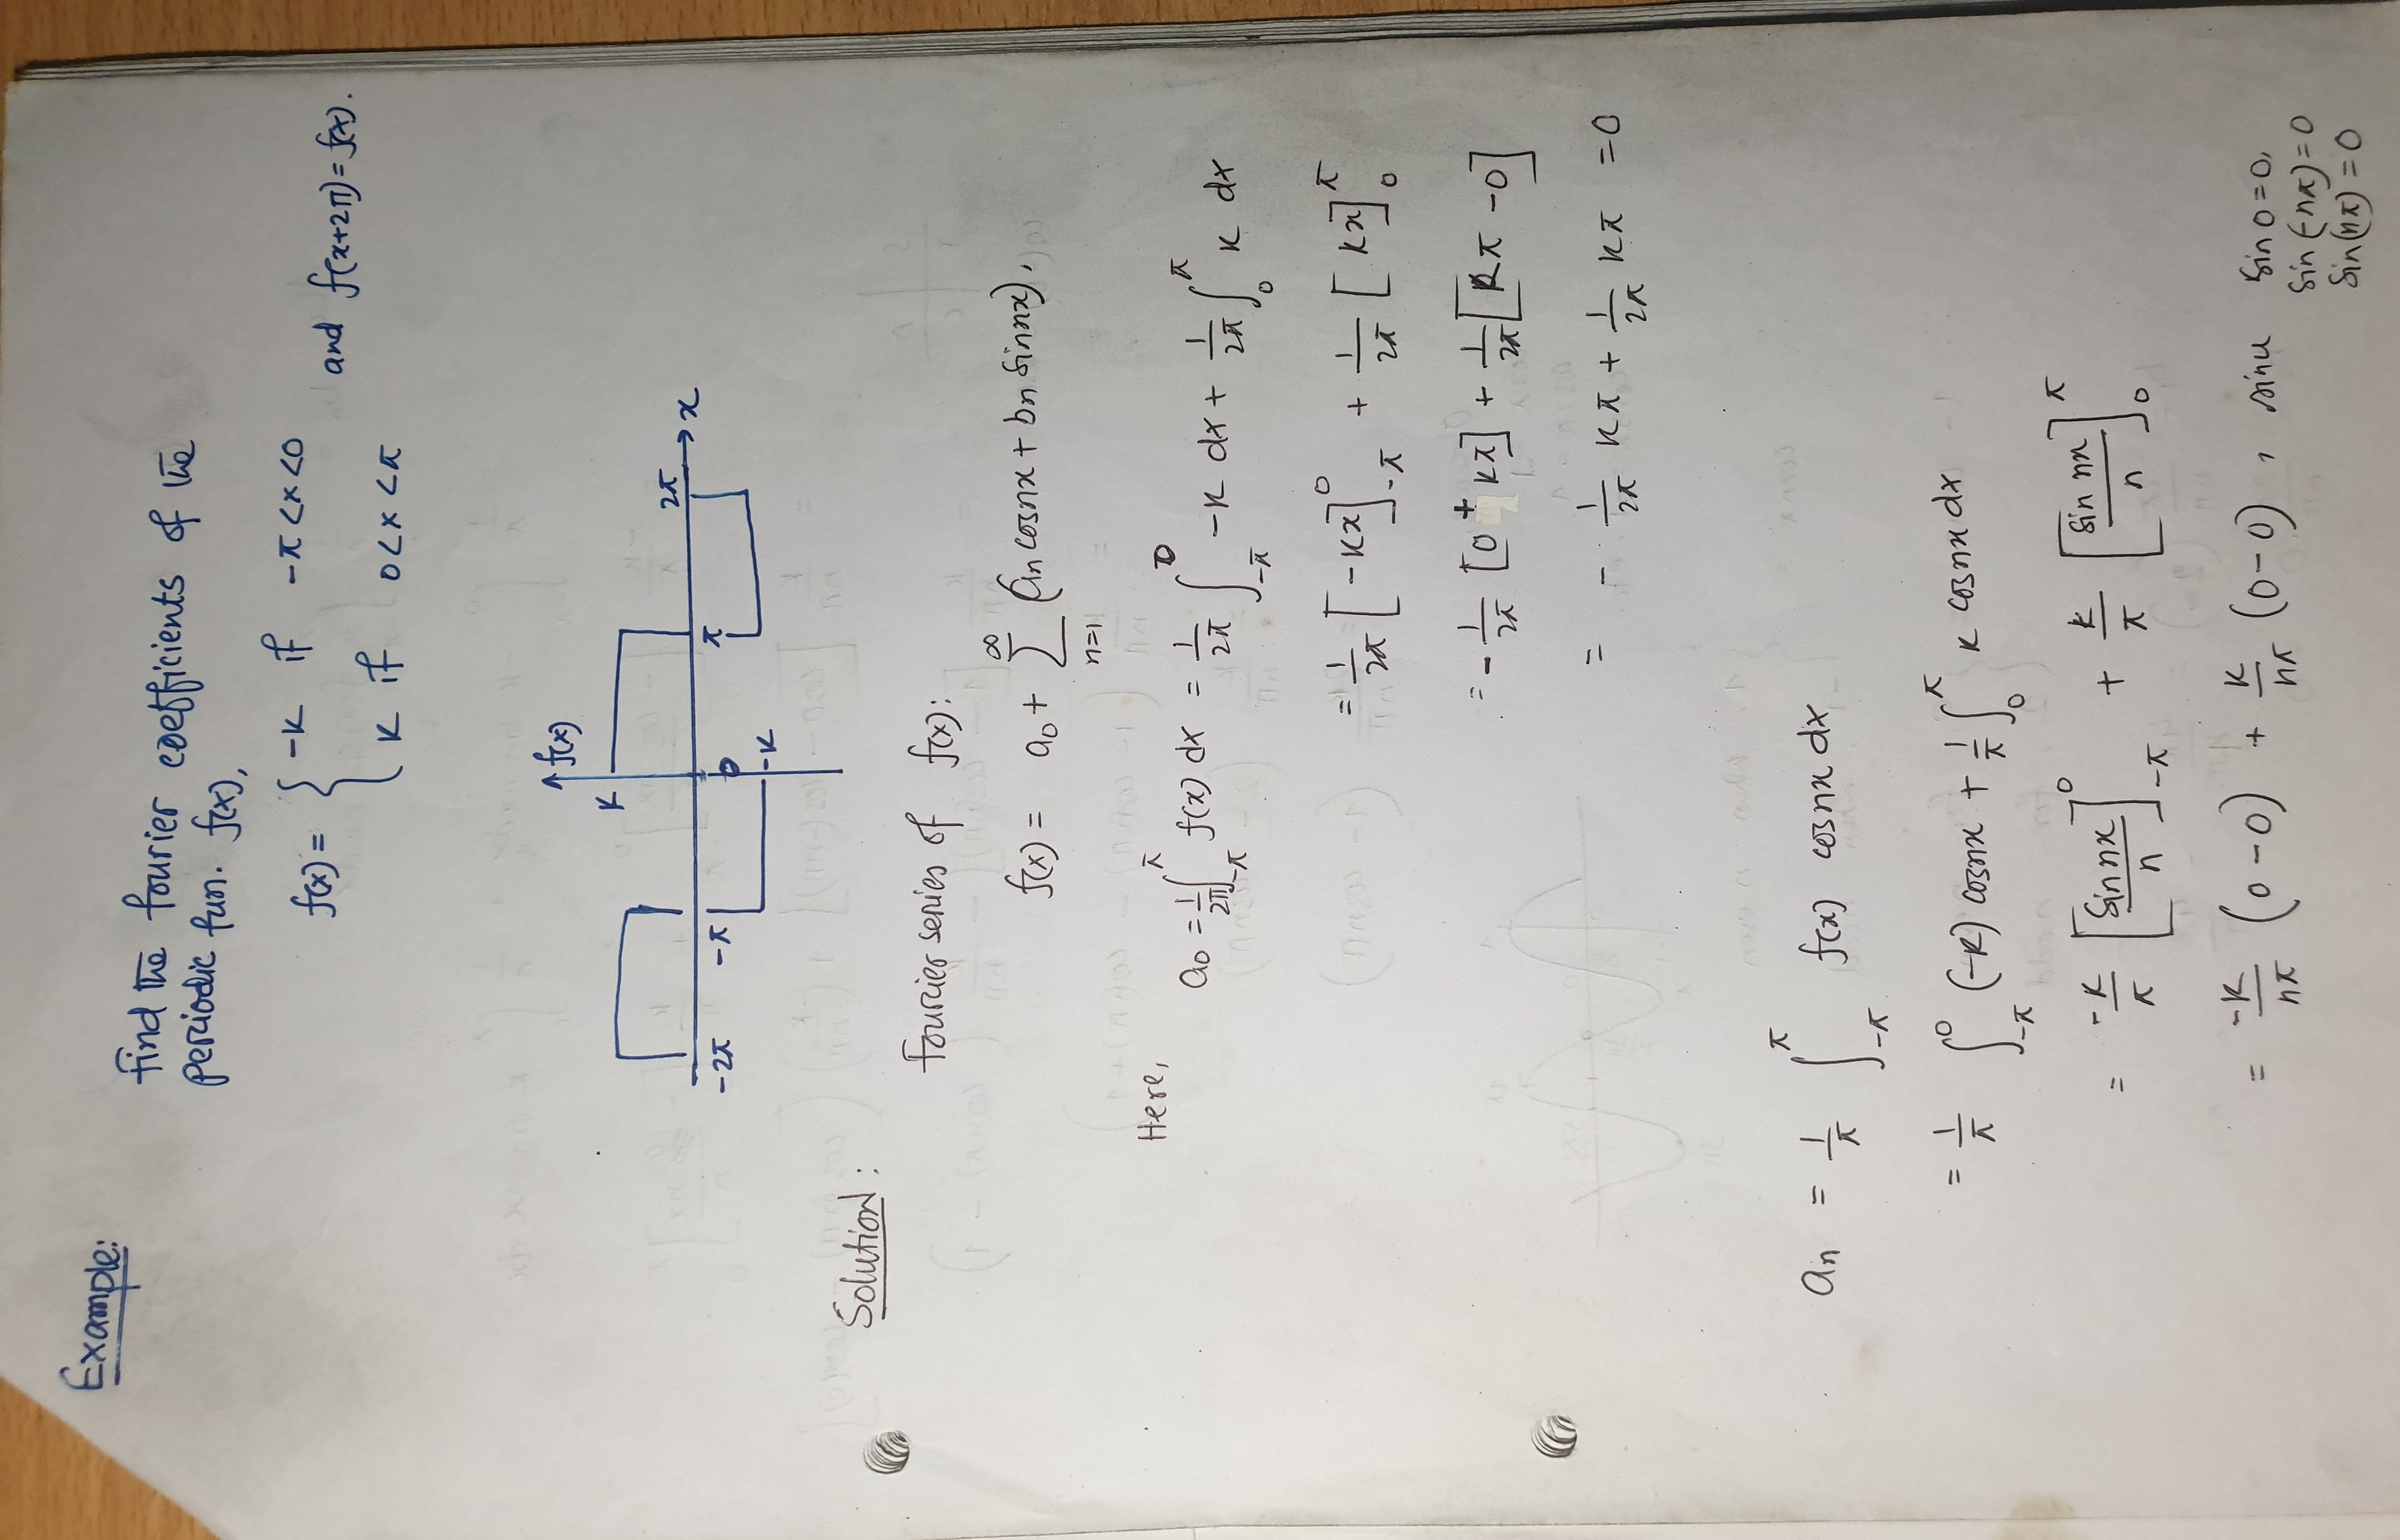 Example:
Find the fourier coefficients of the
periodic fun. f(x),
f(x) = { -K if -π < x < 0
K if 0 < x < π and f(x+2π) = f(x).
↑ f(x)
K
-2π -π 0 π 2π → x
-K
Solution:
Fourier series of f(x):
f(x) = a₀ + ∑_{n=1}^{∞} (an cosnx + bn sinnx),
Here,
a₀ = 1/2π ∫_{-π}^{π} f(x) dx = 1/2π ∫_{-π}^{0} -K dx + 1/2π ∫_{0}^{π} K dx
= 1/2π [-Kx]_{-π}^{0} + 1/2π [Kx]_{0}^{π}
= -1/2π [0 + Kπ] + 1/2π [Kπ - 0]
= - 1/2π Kπ + 1/2π Kπ = 0
an = 1/π ∫_{-π}^{π} f(x) cosnx dx
= 1/π ∫_{-π}^{0} (-K) cosnx + 1/π ∫_{0}^{π} K cosnx dx
= -K/π [sin nx/n]_{-π}^{0} + K/π [sin nx/n]_{0}^{π}
= -K/nπ (0-0) + K/nπ (0-0), sinu sin0=0,
sin(-nπ)=0
sin(nπ)=0